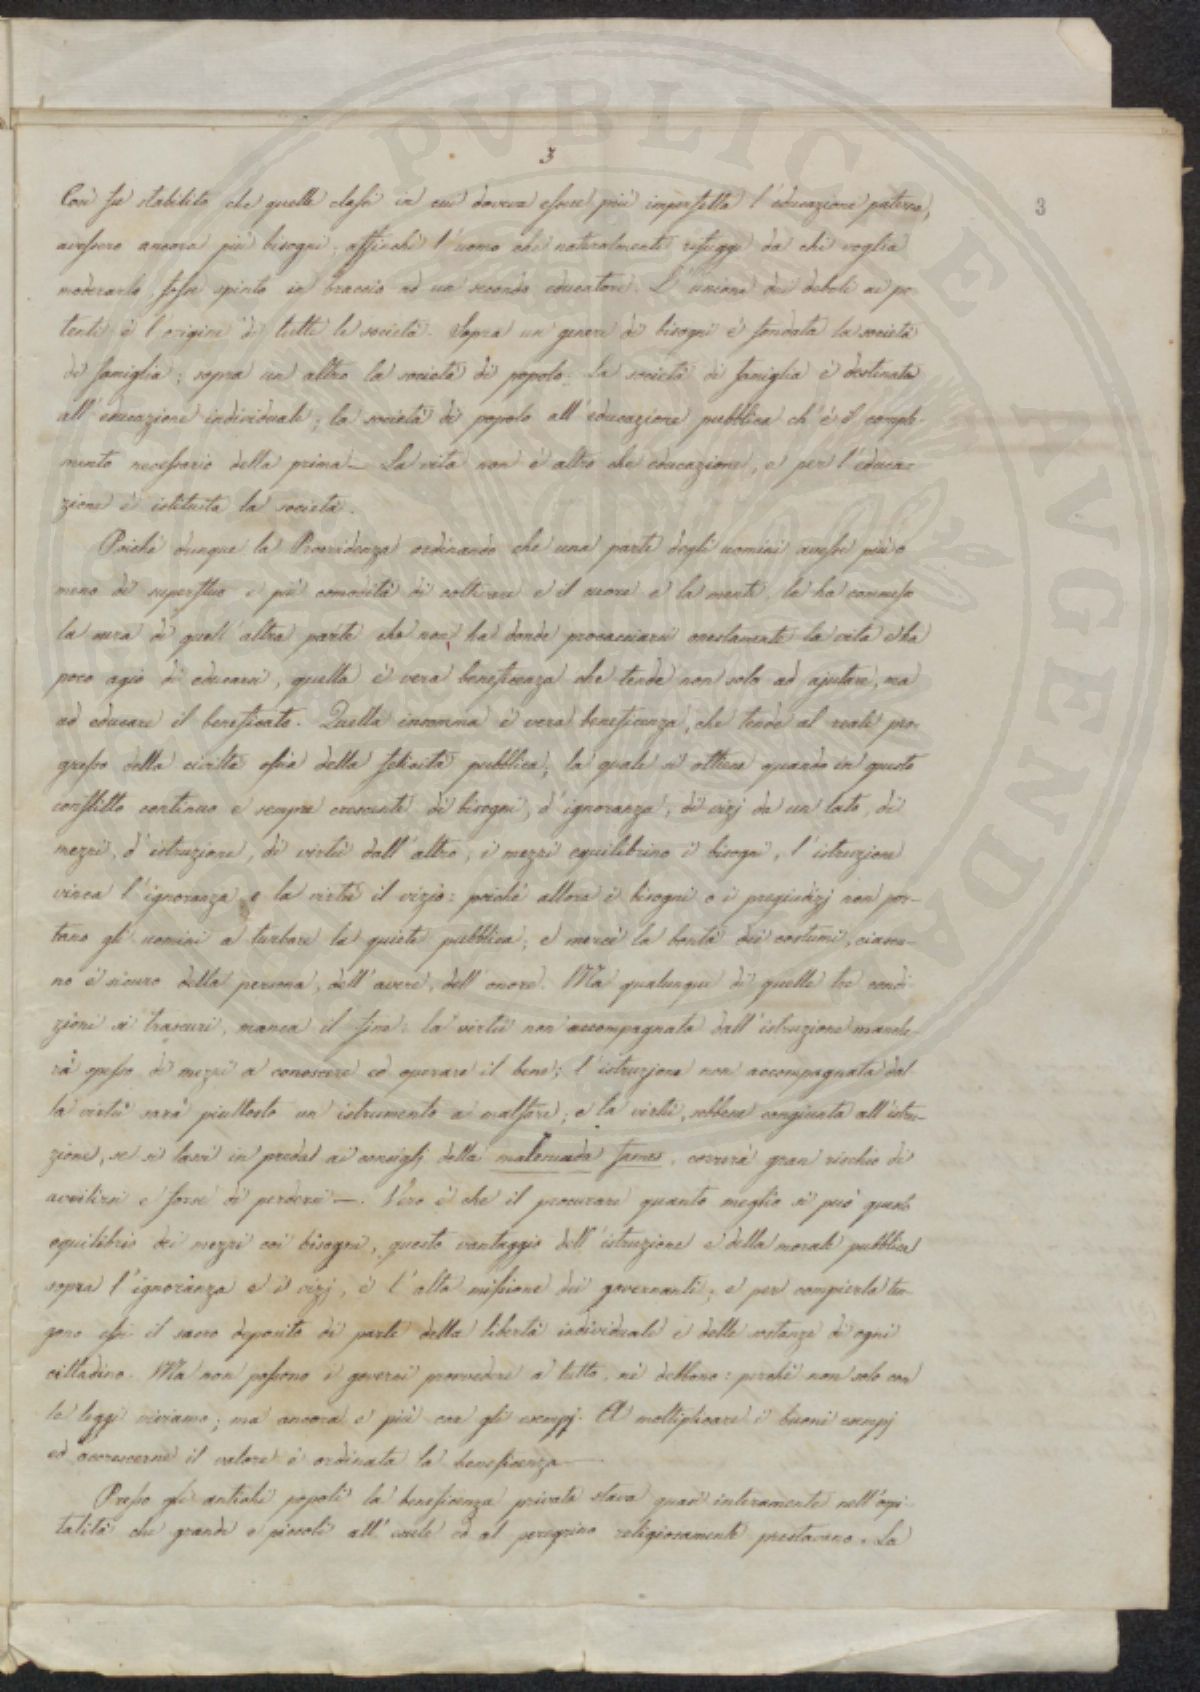 3
3
Così fu stabilito che quelle classi in cui doveva essere più imperfetta l'educazione paterna,
avessero ancora più bisogni, affinchè l'uomo che naturalmente rifugge da chi voglia
moderarlo, fosse spinto in braccio ad un secondo educatore. L'unione dei deboli ai po-
tenti è l'origine di tutte le società. Sopra un genere di bisogni è fondata la società
di famiglia; sopra un altro la società di popolo. La società di famiglia è destinata
all'educazione individuale; la società di popolo all'educazione pubblica ch'è il compli-
mento necessario della prima — La vita non è altro che educazione, e per l'educa-
zione è istituita la società.
Poichè dunque la Provvidenza ordinando che una parte degli uomini avesse più o
meno di superfluo e più comodità di coltivare e il cuore e la mente, le ha commesso
la cura di quell'altra parte che non ha donde procacciarsi onestamente la vita e ha
poco agio di educarsi, quella è vera beneficenza che tende non solo ad ajutare, ma
ad educare il beneficato. Quella insomma è vera beneficenza, che tende al reale pro-
gresso della civiltà ossia della felicità pubblica; la quale si ottiene quando in questo
conflitto continuo e sempre crescente di bisogni, d'ignoranza, di vizj da un lato, di
mezzi, d'istruzione, di virtù dall'altro, i mezzi equilibrino i bisogni, l'istruzione
vinca l'ignoranza e la virtù il vizio: poichè allora i bisogni e i pregiudizj non por-
tano gli uomini a turbare la quiete pubblica; e mercè la bontà dei costumi, ciascu-
no è sicuro della persona, dell'avere, dell'onore. Ma qualunque di quelle tre condi-
zioni si trascuri, manca il fine: la virtù non accompagnata dall'istruzione manche-
rà spesso di mezzi a conoscere ed operare il bene; l'istruzione non accompagnata dal-
la virtù sarà piuttosto un istrumento a malfare; e la virtù, sebbene congiunta all'istru-
zione, se si lasci in preda ai consigli della malesuada fames, correrà gran rischio di
avvilirsi e forse di perdersi —. Vero è che il procurare quanto meglio si può questo
equilibrio dei mezzi coi bisogni, questo vantaggio dell'istruzione e della morale pubblica
sopra l'ignoranza e i vizj, è l'alta missione dei governanti; e per compierla ten-
gono essi il sacro deposito di parte della libertà individuale e delle sostanze di ogni
cittadino. Ma non possono i governi provvedere a tutto, nè debbono: perchè non solo con
le leggi viviamo; ma ancora e più con gli esempj. A moltiplicare i buoni esempj
ed accrescerne il valore è ordinata la beneficenza —
Presso gli antichi popoli la beneficenza privata stava quasi interamente nell'ospi-
talità che grandi e piccoli all'esule ed al peregrino religiosamente prestavano. La
PVBLICE
AVGENDA